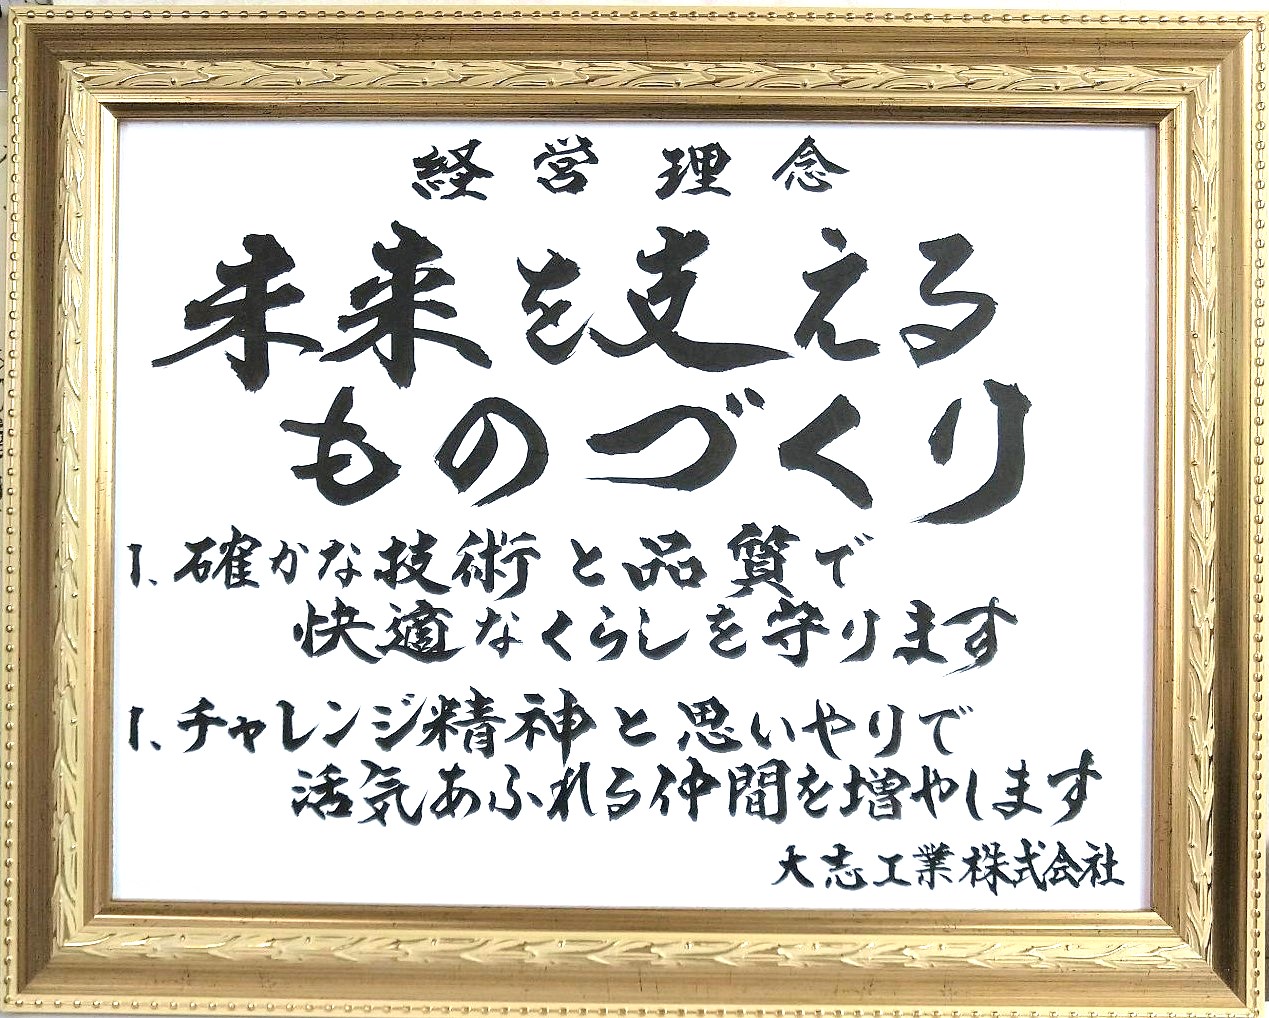 経営理念
未来を支える
ものづくり
1、確かな技術と品質で
快適なくらしを守ります
1、チャレンジ精神と思いやりで
活気あふれる仲間を増やします
大志工業株式会社